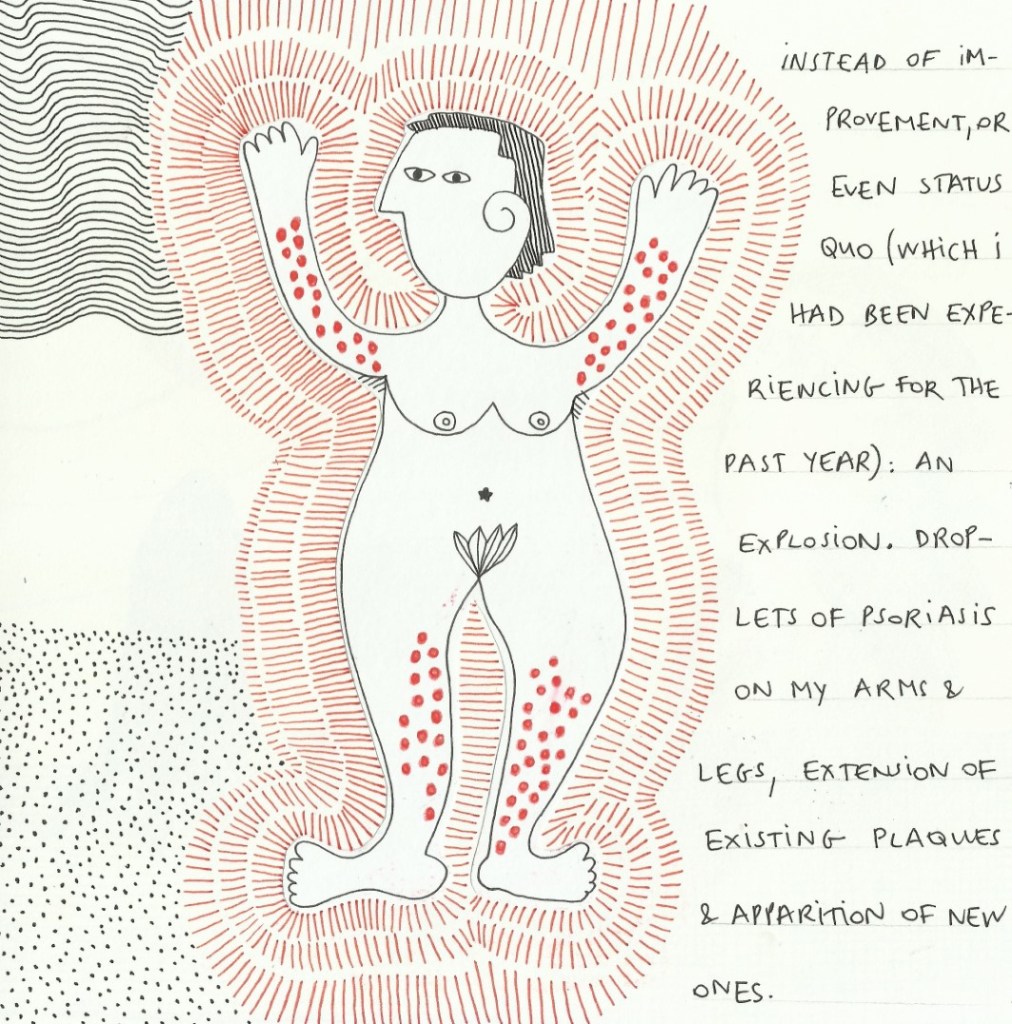 iNSTEAD OF iM-
PROVEMENT, OR
EVEN STATUS
QUO (WHICH i
HAD BEEN EXPE-
RiENCiNG FOR THE
PAST YEAR): AN
EXPLOSION. DROP-
LETS OF PSORIASIS
ON MY ARMS &
LEGS, EXTENSION OF
EXISTING PLAQUES
& APPARITION OF NEW
ONES.